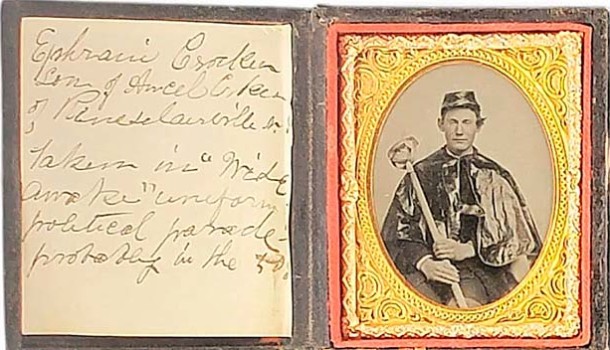 Ephraim Crocker
Son of Ancel
of
taken in "Wide
Awake" uniform
political parade
probably in the 50.